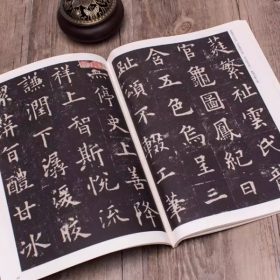 蕤繁祉雲氏
官龜圖鳳紀日
含五色烏呈三
趾頌不輟工筆
停史上善降
祥上智斯悅流
謙潤下潺湲皎
潔蓱旨醴甘冰